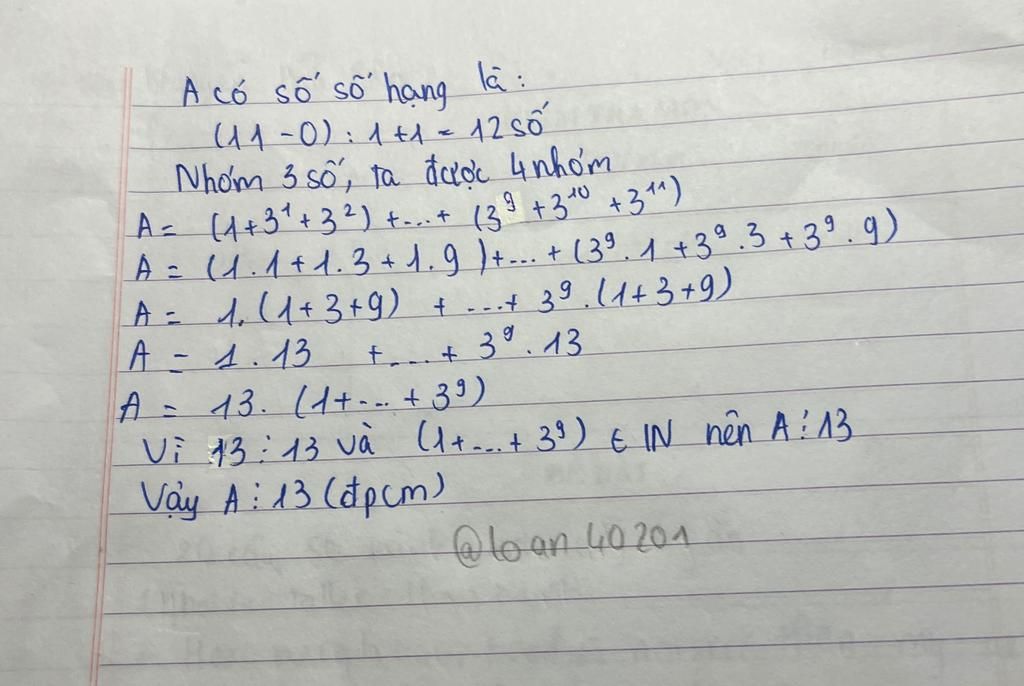 A có số số hạng là:
(11-0):1+1=12 số
Nhóm 3 số, ta được 4 nhóm
A= (1+3¹+3²) +...+ (3⁹+3¹⁰+3¹¹)
A= (1.1+1.3+1.9)+...+(3⁹.1+3⁹.3+3⁹.9)
A= 1.(1+3+9) +...+ 3⁹.(1+3+9)
A= 1.13 +...+ 3⁹.13
A= 13.(1+...+3⁹)
Vì 13⋮13 và (1+...+3⁹) ∈ IN nên A⋮13
Vậy A⋮13 (đpcm)
@loan40201